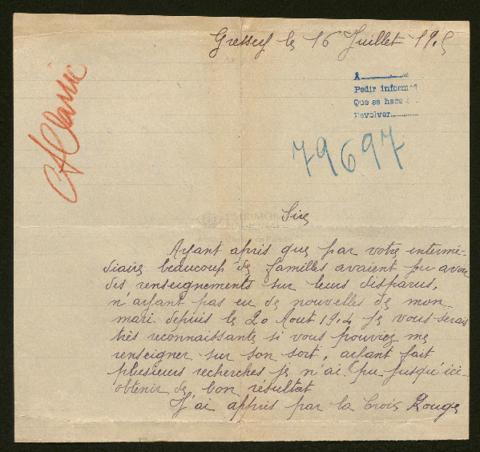 le 16 Juillet 191
A
Pedir inform
Que se hace
Devolver
79697
Sire
Ayant appris que par votre intermé-
diaire beaucoup de familles avaient pu avoir
des renseignements sur leurs disparus,
n'ayant pas eu de nouvelles de mon
mari depuis le 20 Aout 1914 je vous serais
très reconnaissante si vous pouviez me
renseigner sur son sort, ayant fait
plusieurs recherches je n'ai pu jusqu'ici
obtenir de bon résultat
J'ai appris par la Croix Rouge